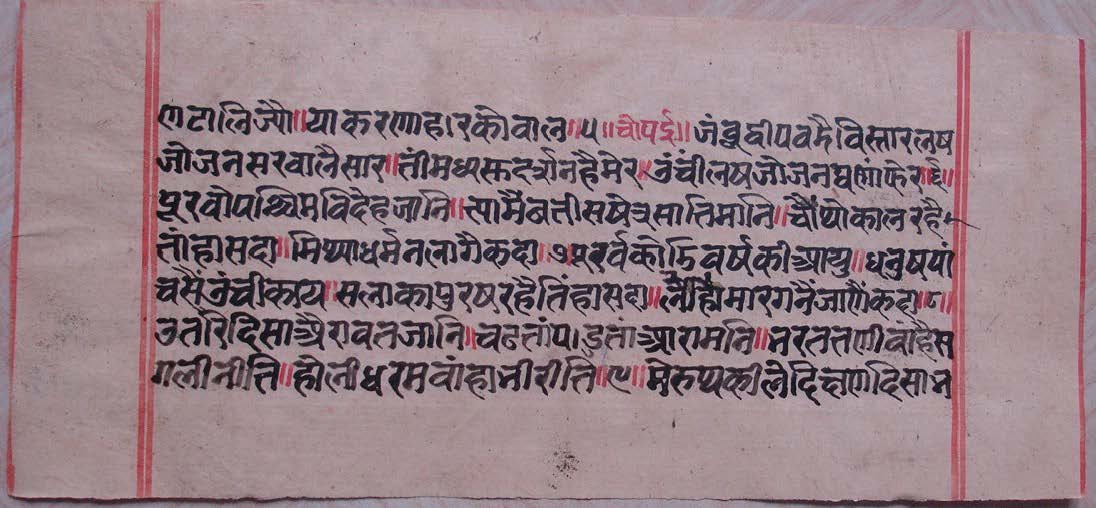 णटालिज्यौ॥याकरणहारकोवाल॥५॥चौपई॥जंबुद्वीपवदैविस्तारलष
जोजनसरवालैसार॥तींमध्यसुदर्शनहैमेर॥उंचौलषजोजनघणांफेर॥६॥
पूरवोपश्चिमविदेहजांनि॥त्यामैंबतीसषेत्रसातिमानि॥चौथोकालरहै
तांहासदा॥मिथ्याधर्मनलागैकदा॥७पूरवकोडिवर्षकीआयु॥धनुषपां
चसैंउंचीकाय॥सलाकापुरषरहैतिंहासदा॥लैहिमारगनैंजाणैंकदा॥८॥
उतरिदिसाऐरावतजानि॥चढतांपडतांआरामनि॥भरततणीवाहैस
गलीनीति॥होलीधरमवांहानीरीति॥९॥मेरुथकीलेदिक्षणदिसाभ